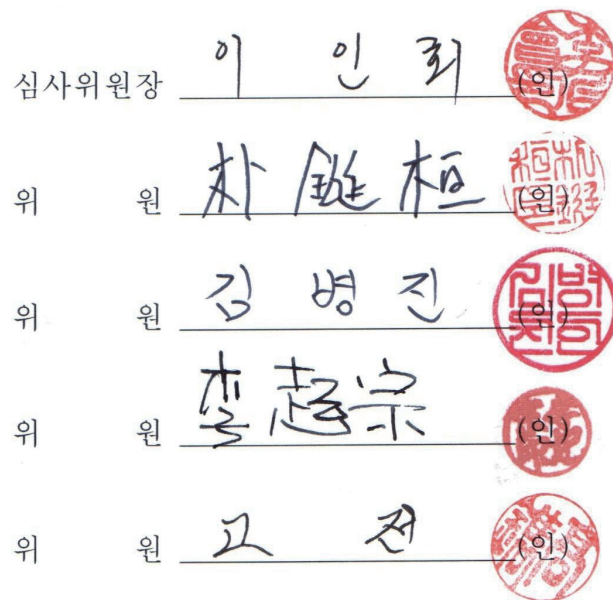 심사위원장 이 인 회 (인)
위 원 朴 鋌 桓 (인)
위 원 김 병 진 (인)
위 원 李起宗 (인)
위 원 고 전 (인)